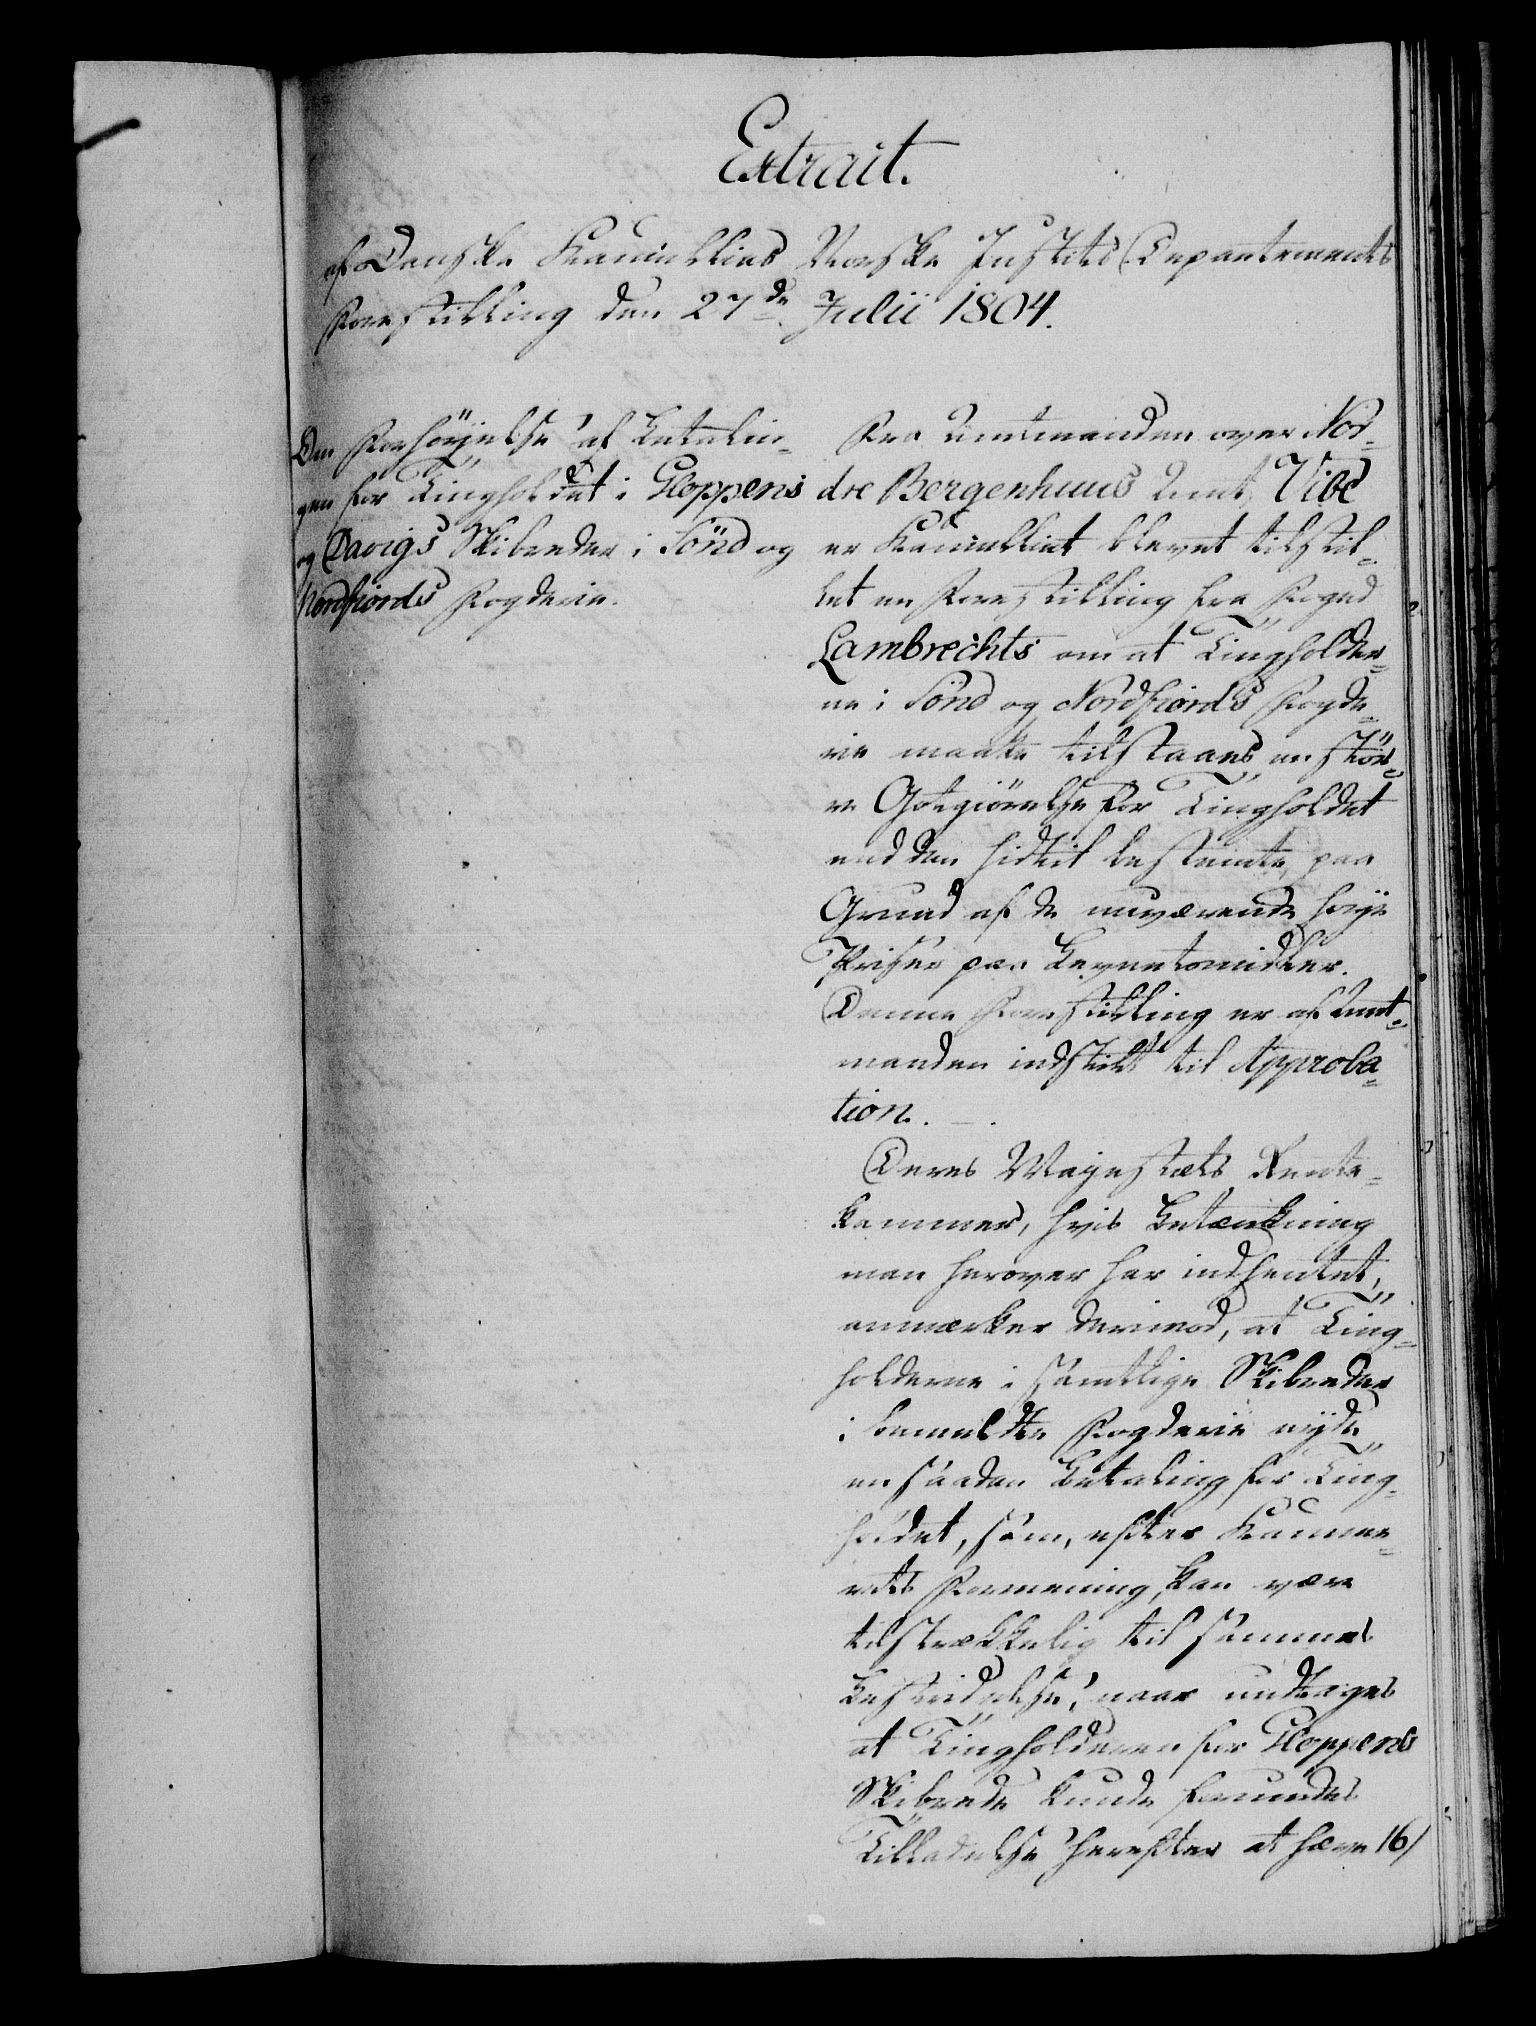 Extrait.
af Danske Kancellies Norske Justits Departements
Forestilling den 27de Julii 1804.
Om Forhöjelse af Betalin-
gen for Tingholdet i Gloppens
og Davigs Skibreder i Sönd og
Nordfiords Fogderie.
Fra Amtmanden over Nor-
dre Bergenhuus Amt, Vibe
er Kancelliet blevet tilstil-
let en Forestilling fra Foged
Lambrechts om at Tingholder-
ne i Sönd og Nordfiords Fogde-
rie maatte tilstaaes en stör-
re Godtgiörelse for Tingholdet
end den hidtil bestemte, paa
Grund af de nuværende höye
Priser paa Levnetsmidler.
Denne Forestilling er af Amt-
manden indstillet til Approba-
tion. -.
Deres Majestæts Rente-
kammer, hvis Betænkning
man herover har indhentet,
anmærker derimod, at Ting-
holderne i samtlige Skibreder
i bemeldte Fogderie nyde
en saadan Betaling for Ting-
holdet, som, efter Kamme-
rets Formening, kan være
tilstrækkelig til sammes
Bestridelse, naar undtages
at Tingholderen for Gloppens
Skibrede kunde forundes
Tilladelse herefter at hæve 16/